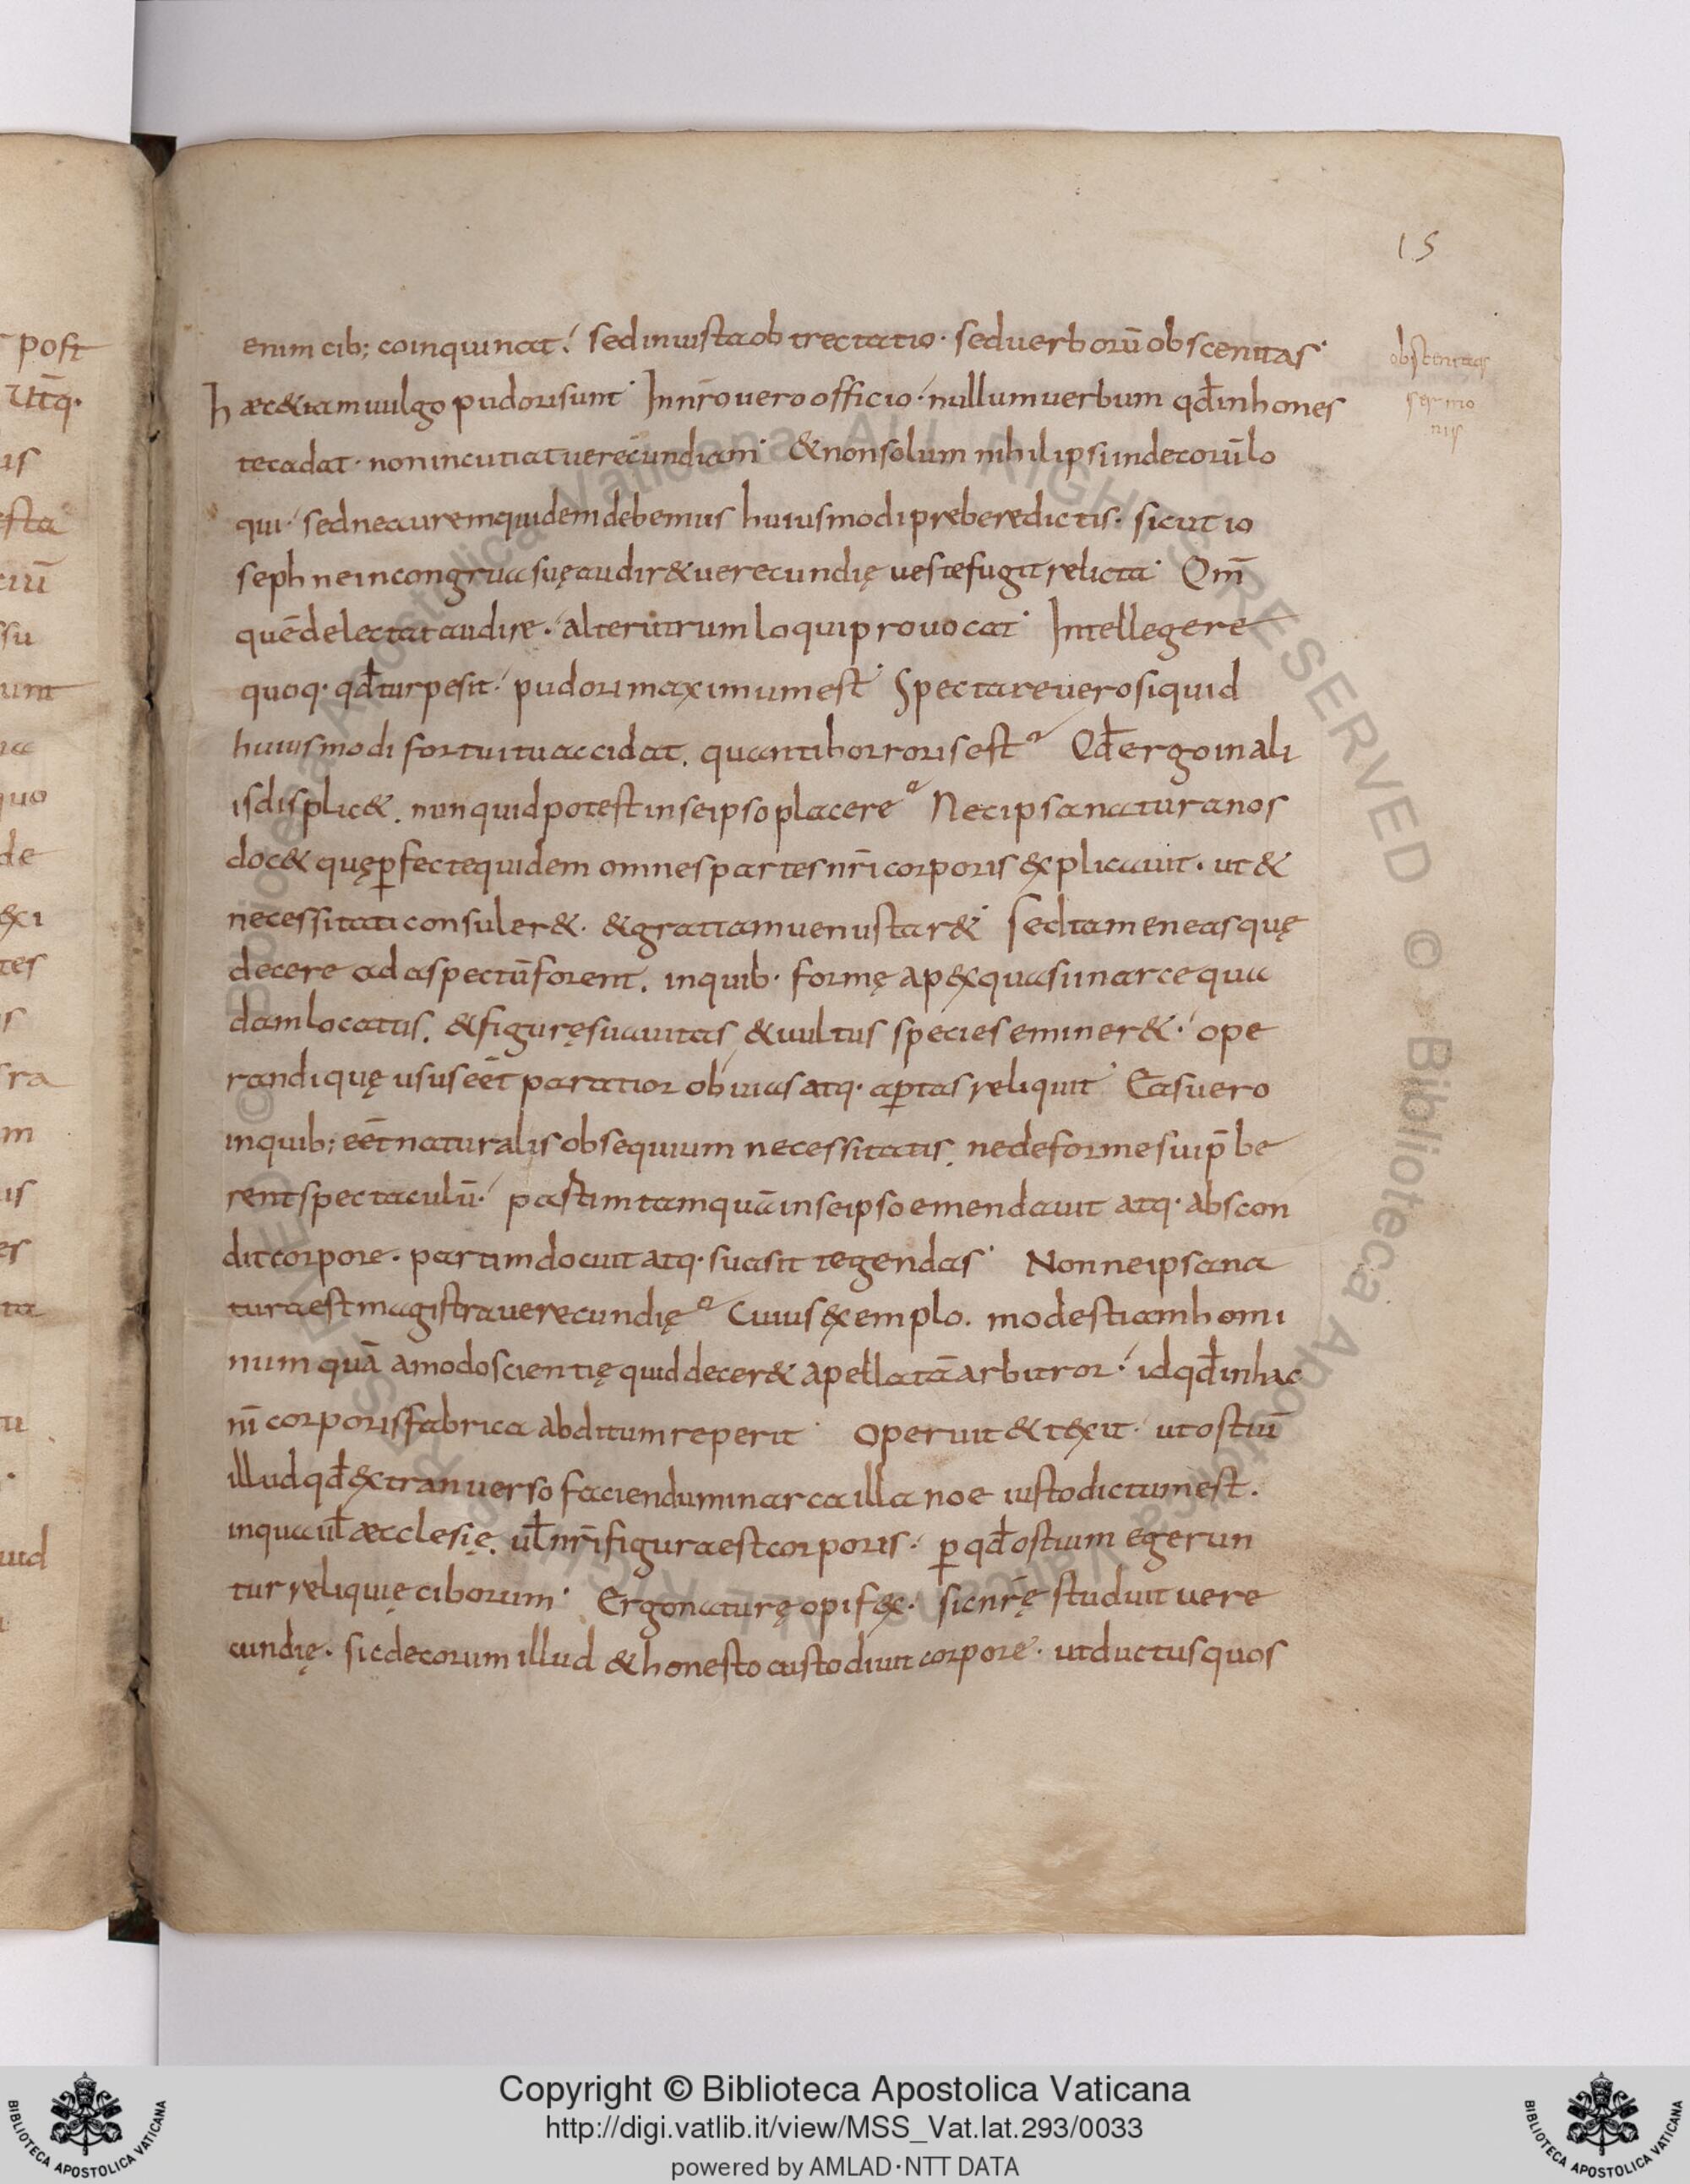 15
enim cib; coinquinat. sed iniusta obtrectatio. sed uerborū obscenitas.
hæc &iam uulgo pudori sunt. In nr̄o uero officio. nullum uerbum qđ inhones
te cadat. non incutiat uerecundiam. & non solum nihil ipsi indecorūlo
qui. sed ne aurem quidem debemus huiusmodi prebere dictis. sicut io
seph ne incongrua suę audir& uerecundię ueste fugit relicta. Qm̄
quē delectat audire. alterutrum loqui prouocat. Intellegere
quoq. qđ turpe sit. pudori maximum est. Spectare uero si quid
huiusmodi fortuitu accidat. quanti horroris est? Qđ ergo in ali
is displic&. nunquid potest in se ipso placere? Nec ipsa natura nos
doc& quę ꝑfecte quidem omnes partes nr̄i corporis explicauit. ut &
necessitati consuler&. & gratiam uenustar&. sed tamen eas quę
decere ad aspectū forent. in quib. formę apex quasi in arce qua
dam locatus. & figurę suauitas & uultus species eminer&. ope
randi quę usus eēt paratior obuias atq. aptas reliquit. Eas uero
in quib; eēt naturalis obsequium necessitatis. ne deforme sui p̄be
rent spectaculū. pastim tamquā in se ipso emendauit atq. abscon
dit corpore. partim docuit atq. suasit tegendas. Nonne ipsa na
tura est magistra uerecundię? Cuius exemplo. modestiam homi
num quā amodo scientię quid decer& apellatā arbitror. id qđ in hac
nr̄i corporis fabrica abditum reperit. Operuit & texit. ut ostiū
illud qđ ex tranuerso faciendum in arca illa noe iusto dictum est.
in qua ul̄ æcclesię. ul̄ nr̄i figura est corporis. ꝑ qđ ostium egerun
tur reliquię ciborum. Ergo naturę opifex. sic nr̄ę studuit uere
cundię. sic decorum illud & honesto custodiuit corpore. ut ductus quos
obscenitas
sermo
nis
post
Utq.
us
esta
ciū
ssu
unt
quo
de
exi
tes
s
ra
m
is
es
ta
uid
Copyright © Biblioteca Apostolica Vaticana
http://digi.vatlib.it/view/MSS_Vat.lat.293/0033
powered by AMLAD·NTT DATA
BIBLIOTECA APOSTOLICA VATICANA
BIBLIOTECA APOSTOLICA VATICANA